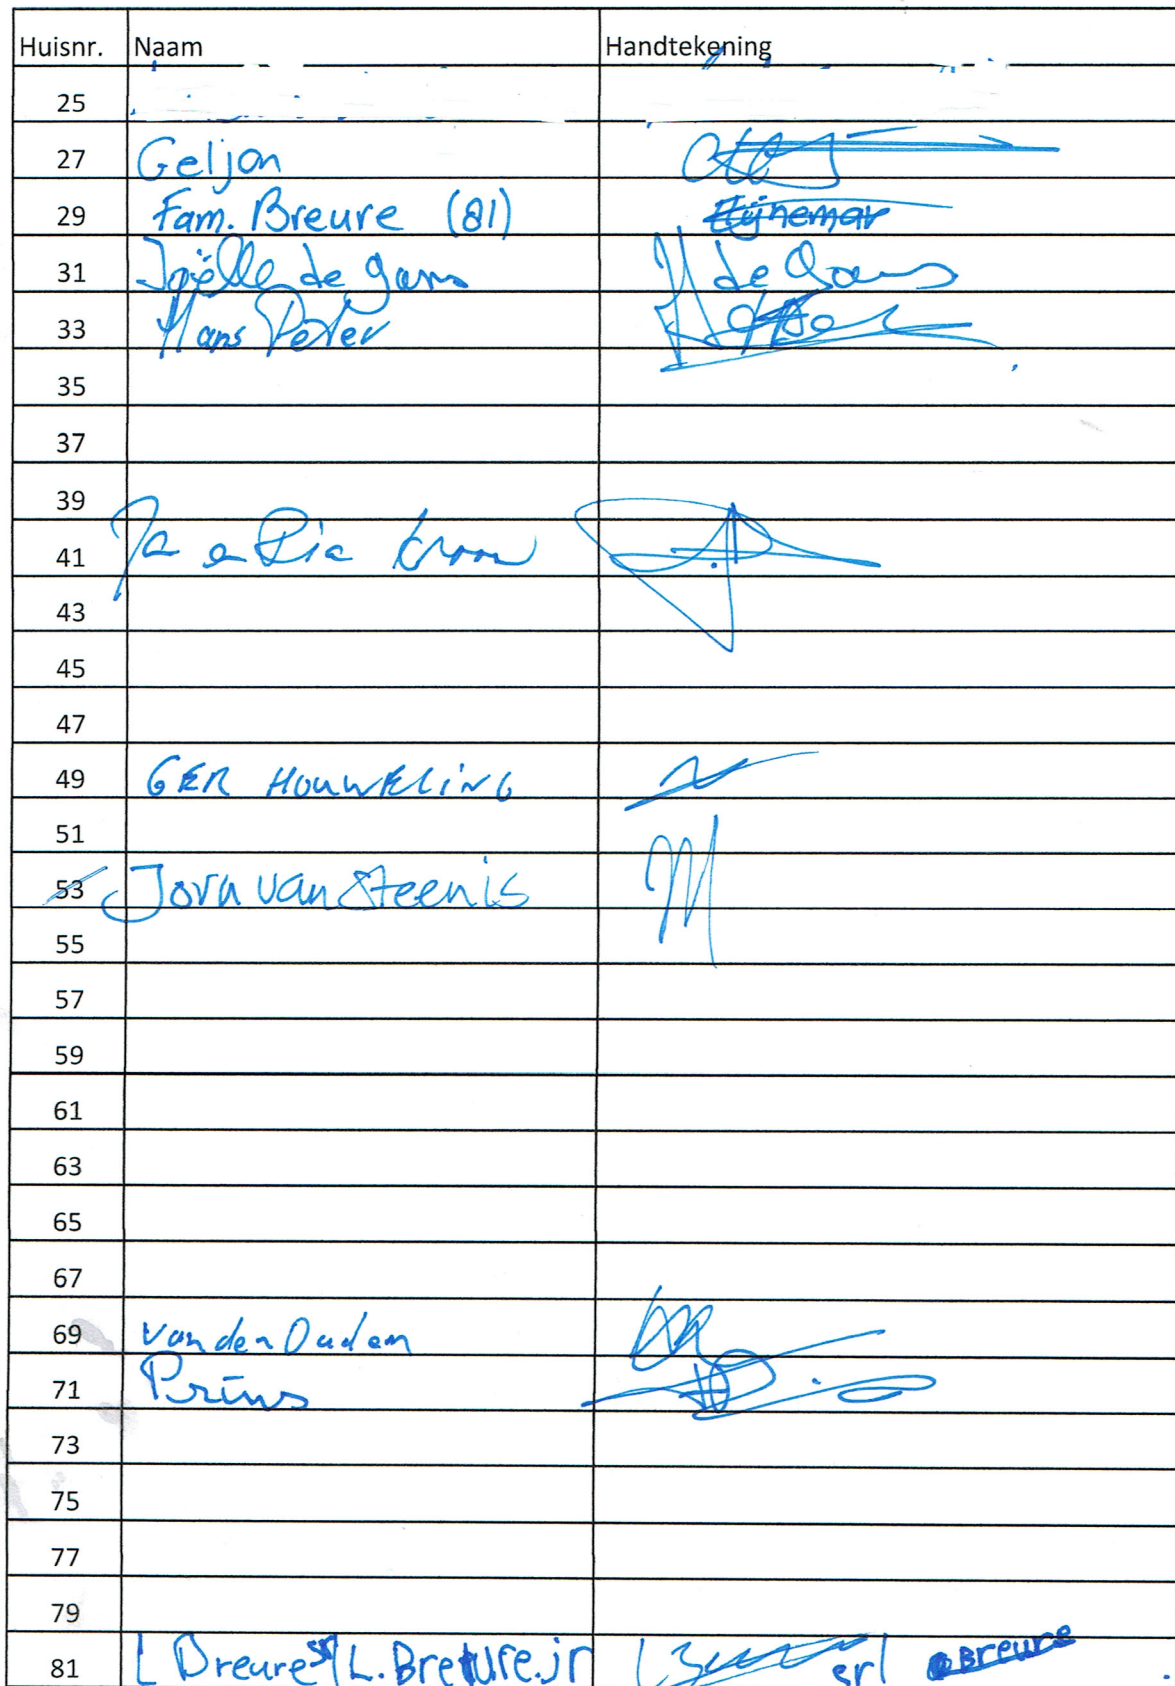 Huisnr. Naam Handtekening
25
27 Geljon
29 Fam. Breure (81)
31 Joëlle de Gans de Gans
33 Hans Peter
35
37
39
41 en Ria
43
45
47
49 GER HOUWELING
51
53 Jorn van Steenis
55
57
59
61
63
65
67
69 van den Ouden
71 Prins
73
75
77
79
81 L Breure sr / L. Breure.jr sr / Breure